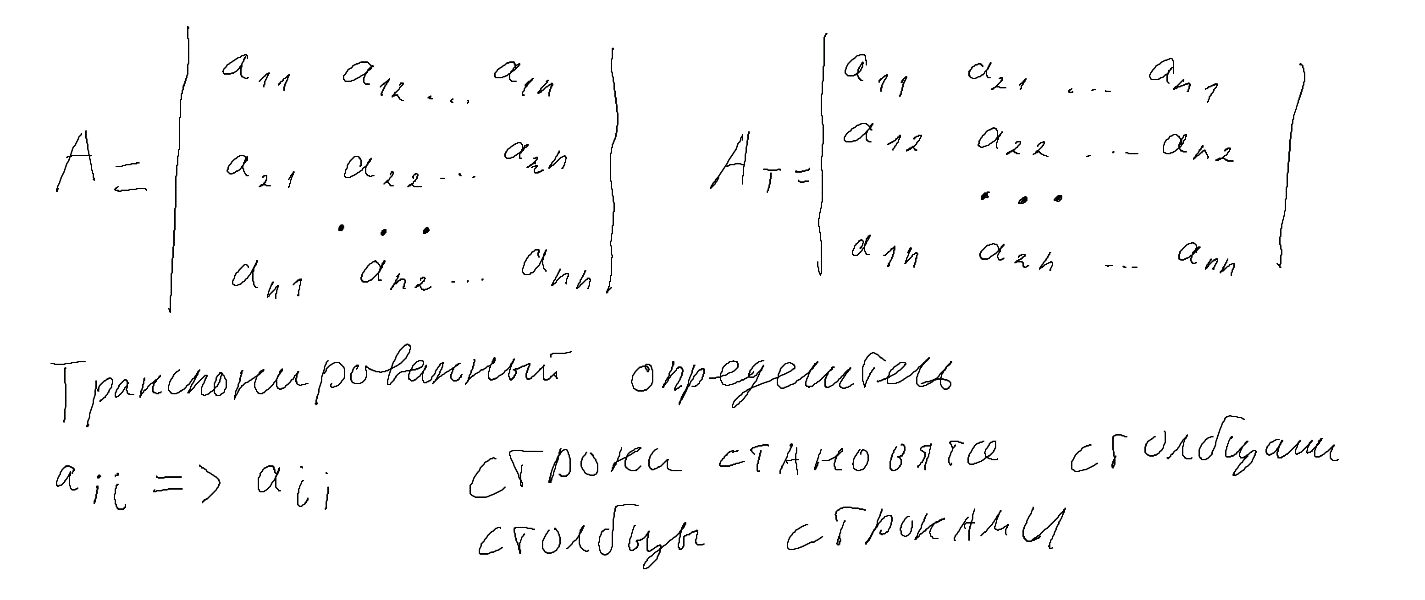 A = | a11 a12 ... a1n |
| a21 a22 ... a2n |
| . . . |
| an1 an2 ... ann |
AT = | a11 a21 ... an1 |
| a12 a22 ... an2 |
| . . . |
| a1n a2n ... ann |
Транспонированный определитель
aij => aij строки становятся столбцами
столбцы строками